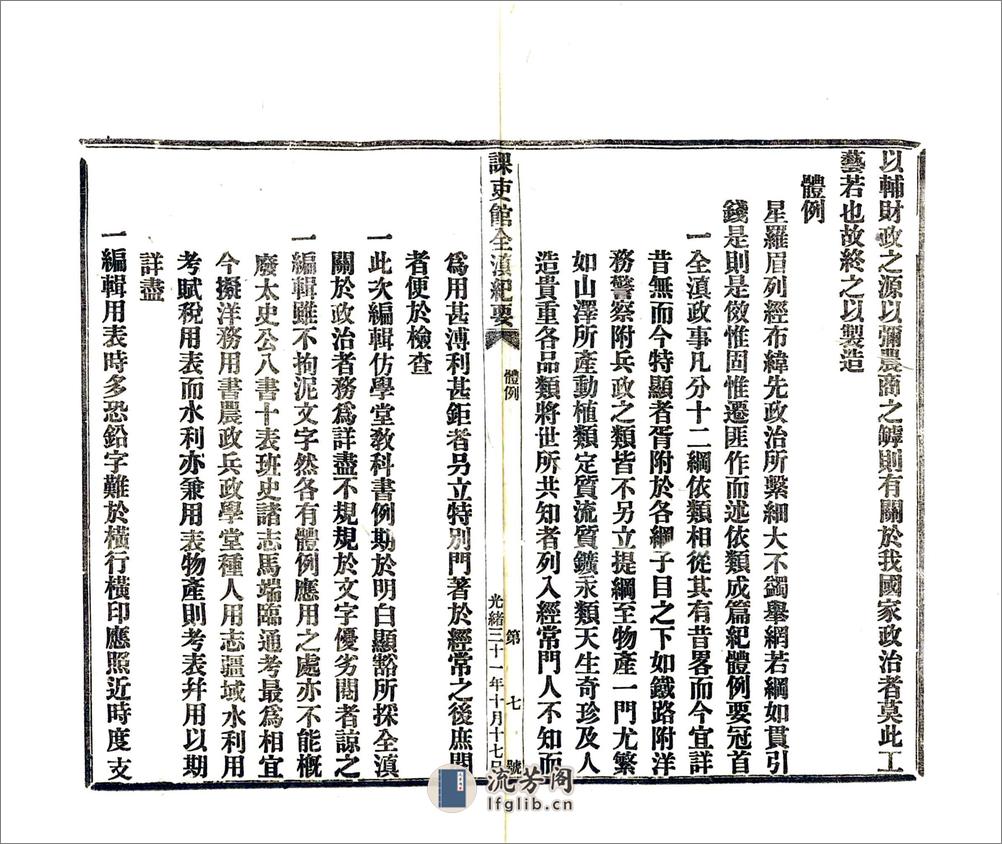 以輔財政之源以彌農商之罅則有關於我國家政治者莫此工
藝若也故終之以製造
體例
星羅眉列經布緯先政治所繫細大不蠲舉網若綱如貫引
錢是則是傚惟固惟遷匪作而述依類成篇紀體例要冠首
一全滇政事凡分十二綱依類相從其有昔畧而今宜詳
昔無而今特顯者胥附於各綱子目之下如鐵路附洋
務警察附兵政之類皆不另立提綱至物產一門尤繁
如山澤所產動植類定質流質鑛汞類天生奇珍及人
造貴重各品類將世所共知者列入經常門人不知而
課吏館全滇紀要
體例
第七號
光緒三十一年十月十七日
爲用甚溥利甚鉅者另立特別門著於經常之後庶閱
者便於檢查
一此次編輯仿學堂教科書例期於明白顯豁所採全滇
關於政治者務爲詳盡不規規於文字優劣閱者諒之
一編輯雖不拘泥文字然各有體例應用之處亦不能概
廢太史公八書十表班史諸志馬端臨通考最爲相宜
今擬洋務用書農政兵政學堂種人用志疆域水利用
考賦稅用表而水利亦兼用表物產則考表幷用以期
詳盡
一編輯用表時多恐鉛字難於橫行橫印應照近時度支
流芳阁
lfglib.cn